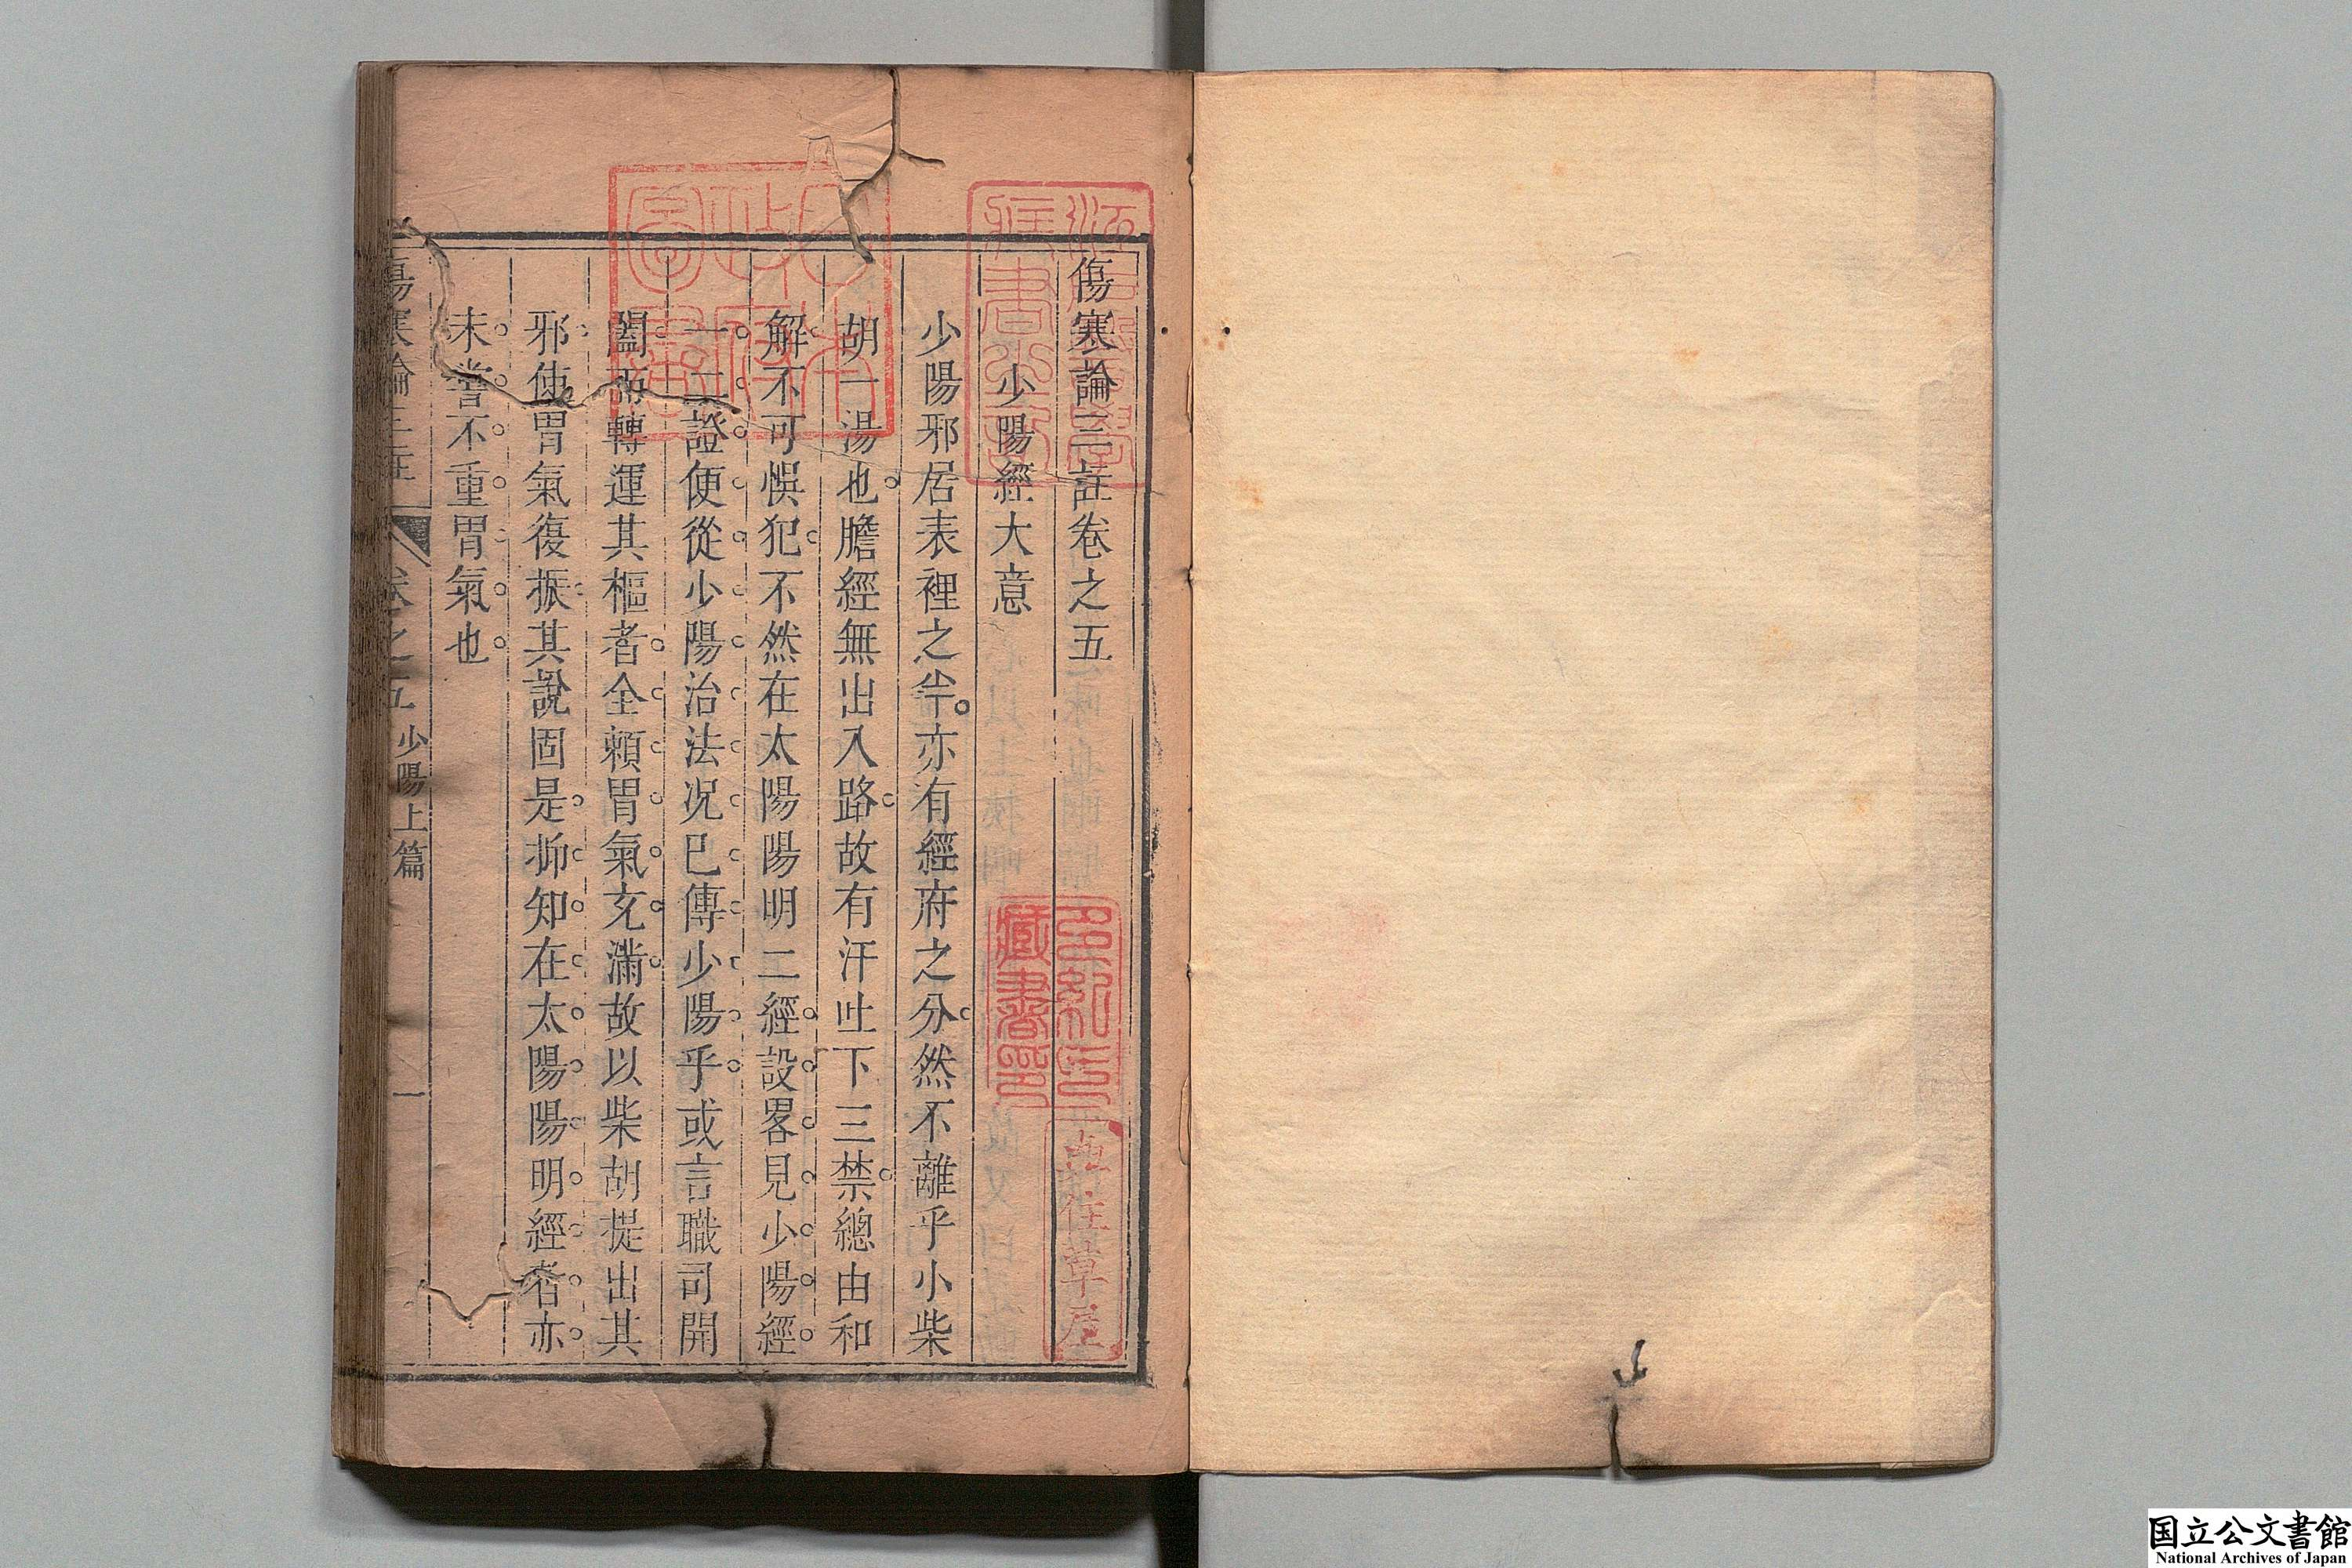 傷寒論三註卷之五
少陽經大意
少陽邪居表裡之半亦有經府之分然不離乎小柴
胡一湯也膽經無出入路故有汗吐下三禁總由和
解不可悞犯不然在太陽陽明二經設畧見少陽經
一二證便從少陽治法况已傳少陽乎或言職司開
闔而轉運其樞者全賴胃氣充滿故以柴胡提出其
邪使胃氣復振其說固是抑知在太陽陽明經者亦
未嘗不重胃氣也
傷寒論三註 卷之五 少陽上篇 一
日本政府圖書
藏書
草屋
国立公文書館
National Archives of Japan